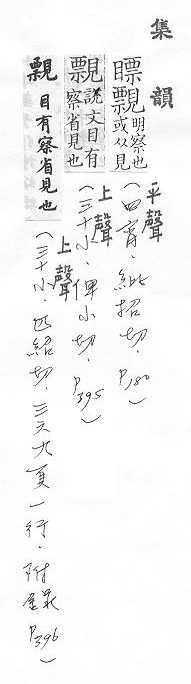 集韻
瞟 明察也或从見 平聲(四宵.紕招切.P180)
說文目有察省見也 上聲(三十小.俾小切.P395)
目有察省見也 上聲(三十小.匹紹切.三六九頁一行.附 P396)